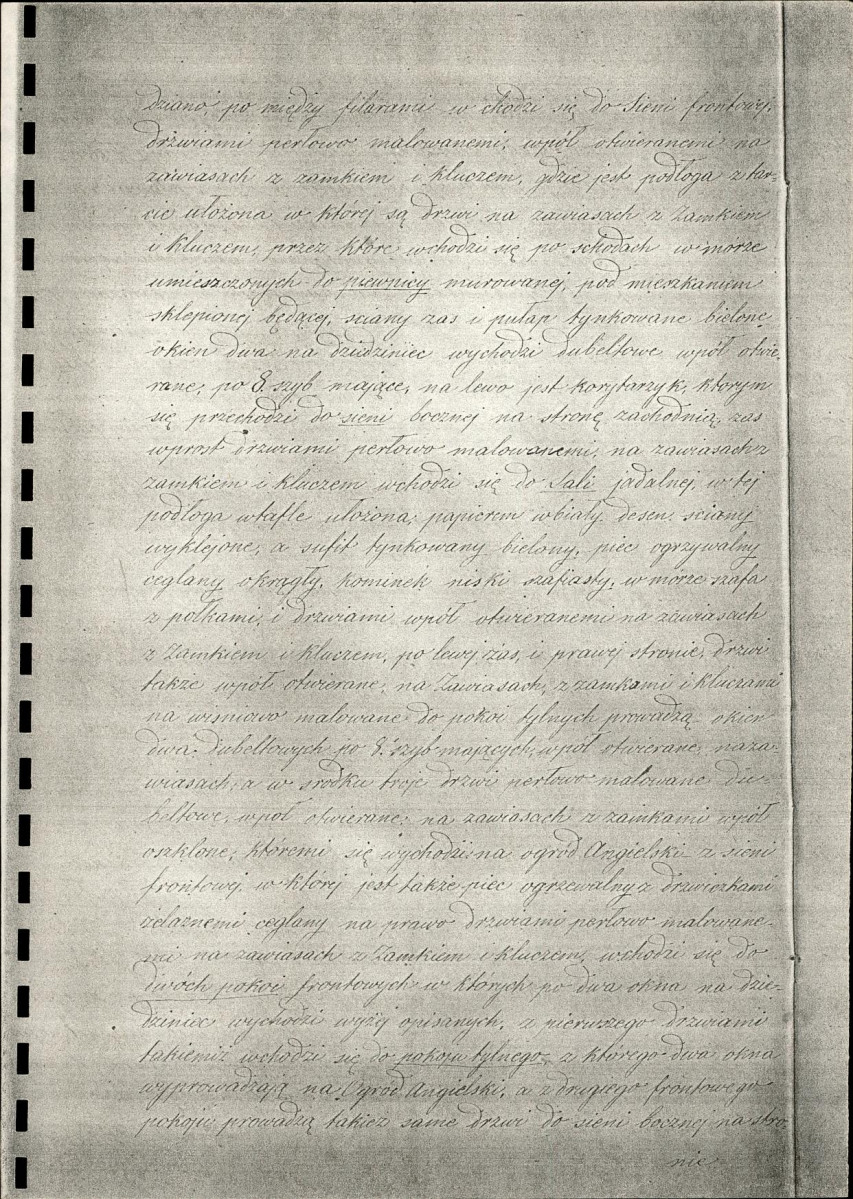 dziano, po między filarami w chodzi się do Sieni frontowej,
drzwiami perłowo malowanemi, wpół otwieranemi na
zawiasach z zamkiem i kluczem, gdzie jest podłoga z tar=
cic ułożona w której są drzwi na zawiasach z Zamkiem
i kluczem, przez które wchodzi się po schodach w morze
umieszczonych do piewnicy murowanej, pod mieszkaniem
sklepionej będącej, sciany zas i pułap tynkowane bielone
okien dwa na dziedziniec wychodzi dubeltowe wpół otwie=
rane, po 8. szyb mające, na lewo jest korytarzyk, ktorym
się przechodzi do sieni bocznej na stronę zachodnią, zas
wprost drzwiami perłowo malowanemi, na zawiasach z
zamkiem i kluczem wchodzi się do Sali jadalnej, w tej
podłoga w tafle ułożona, papierem w biały desen, sciany
wyklejone, a sufit tynkowany bielony, piec ogrzywalny
ceglany okrągły, kominek niski szafiasty, w morze szafa
z połkami, i drzwiami wpół otwieranemi na zawiasach
z Zamkiem i kluczem, po lewej zas, i prawej stronie, drzwi
takze wpół otwierane, na Zawiasach, z zamkami i kluczami
na wisniowo malowane do pokoi tylnych prowadzą okien
dwa dubeltowych po 8. szyb mających, wpół otwierane, na za=
wiasach, a w srodku troje drzwi perłowo malowane du=
beltowe, wpoł otwierane, na zawiasach z zamkami wpół
oszklone, któremi się wychodzi na ogród Angielski z sieni
frontowej, w której jest także piec ogrzewalny z drzwiczkami
zelaznemi ceglany na prawo drzwiami perłowo malowane=
mi na zawiasach z Zamkiem i kluczem, wchodzi się do
dwóch pokoi frontowych w których po dwa okna na dzie=
dziniec wychodzi wyżej opisanych, z pierwszego drzwiami
takiemiz wchodzi się do pokoju tylnego, z którego dwa okna
wyprowadzają na Ogród Angielski, a z drugiego frontowego
pokoju prowadzą takiez same drzwi do sieni bocznej na stro
nie